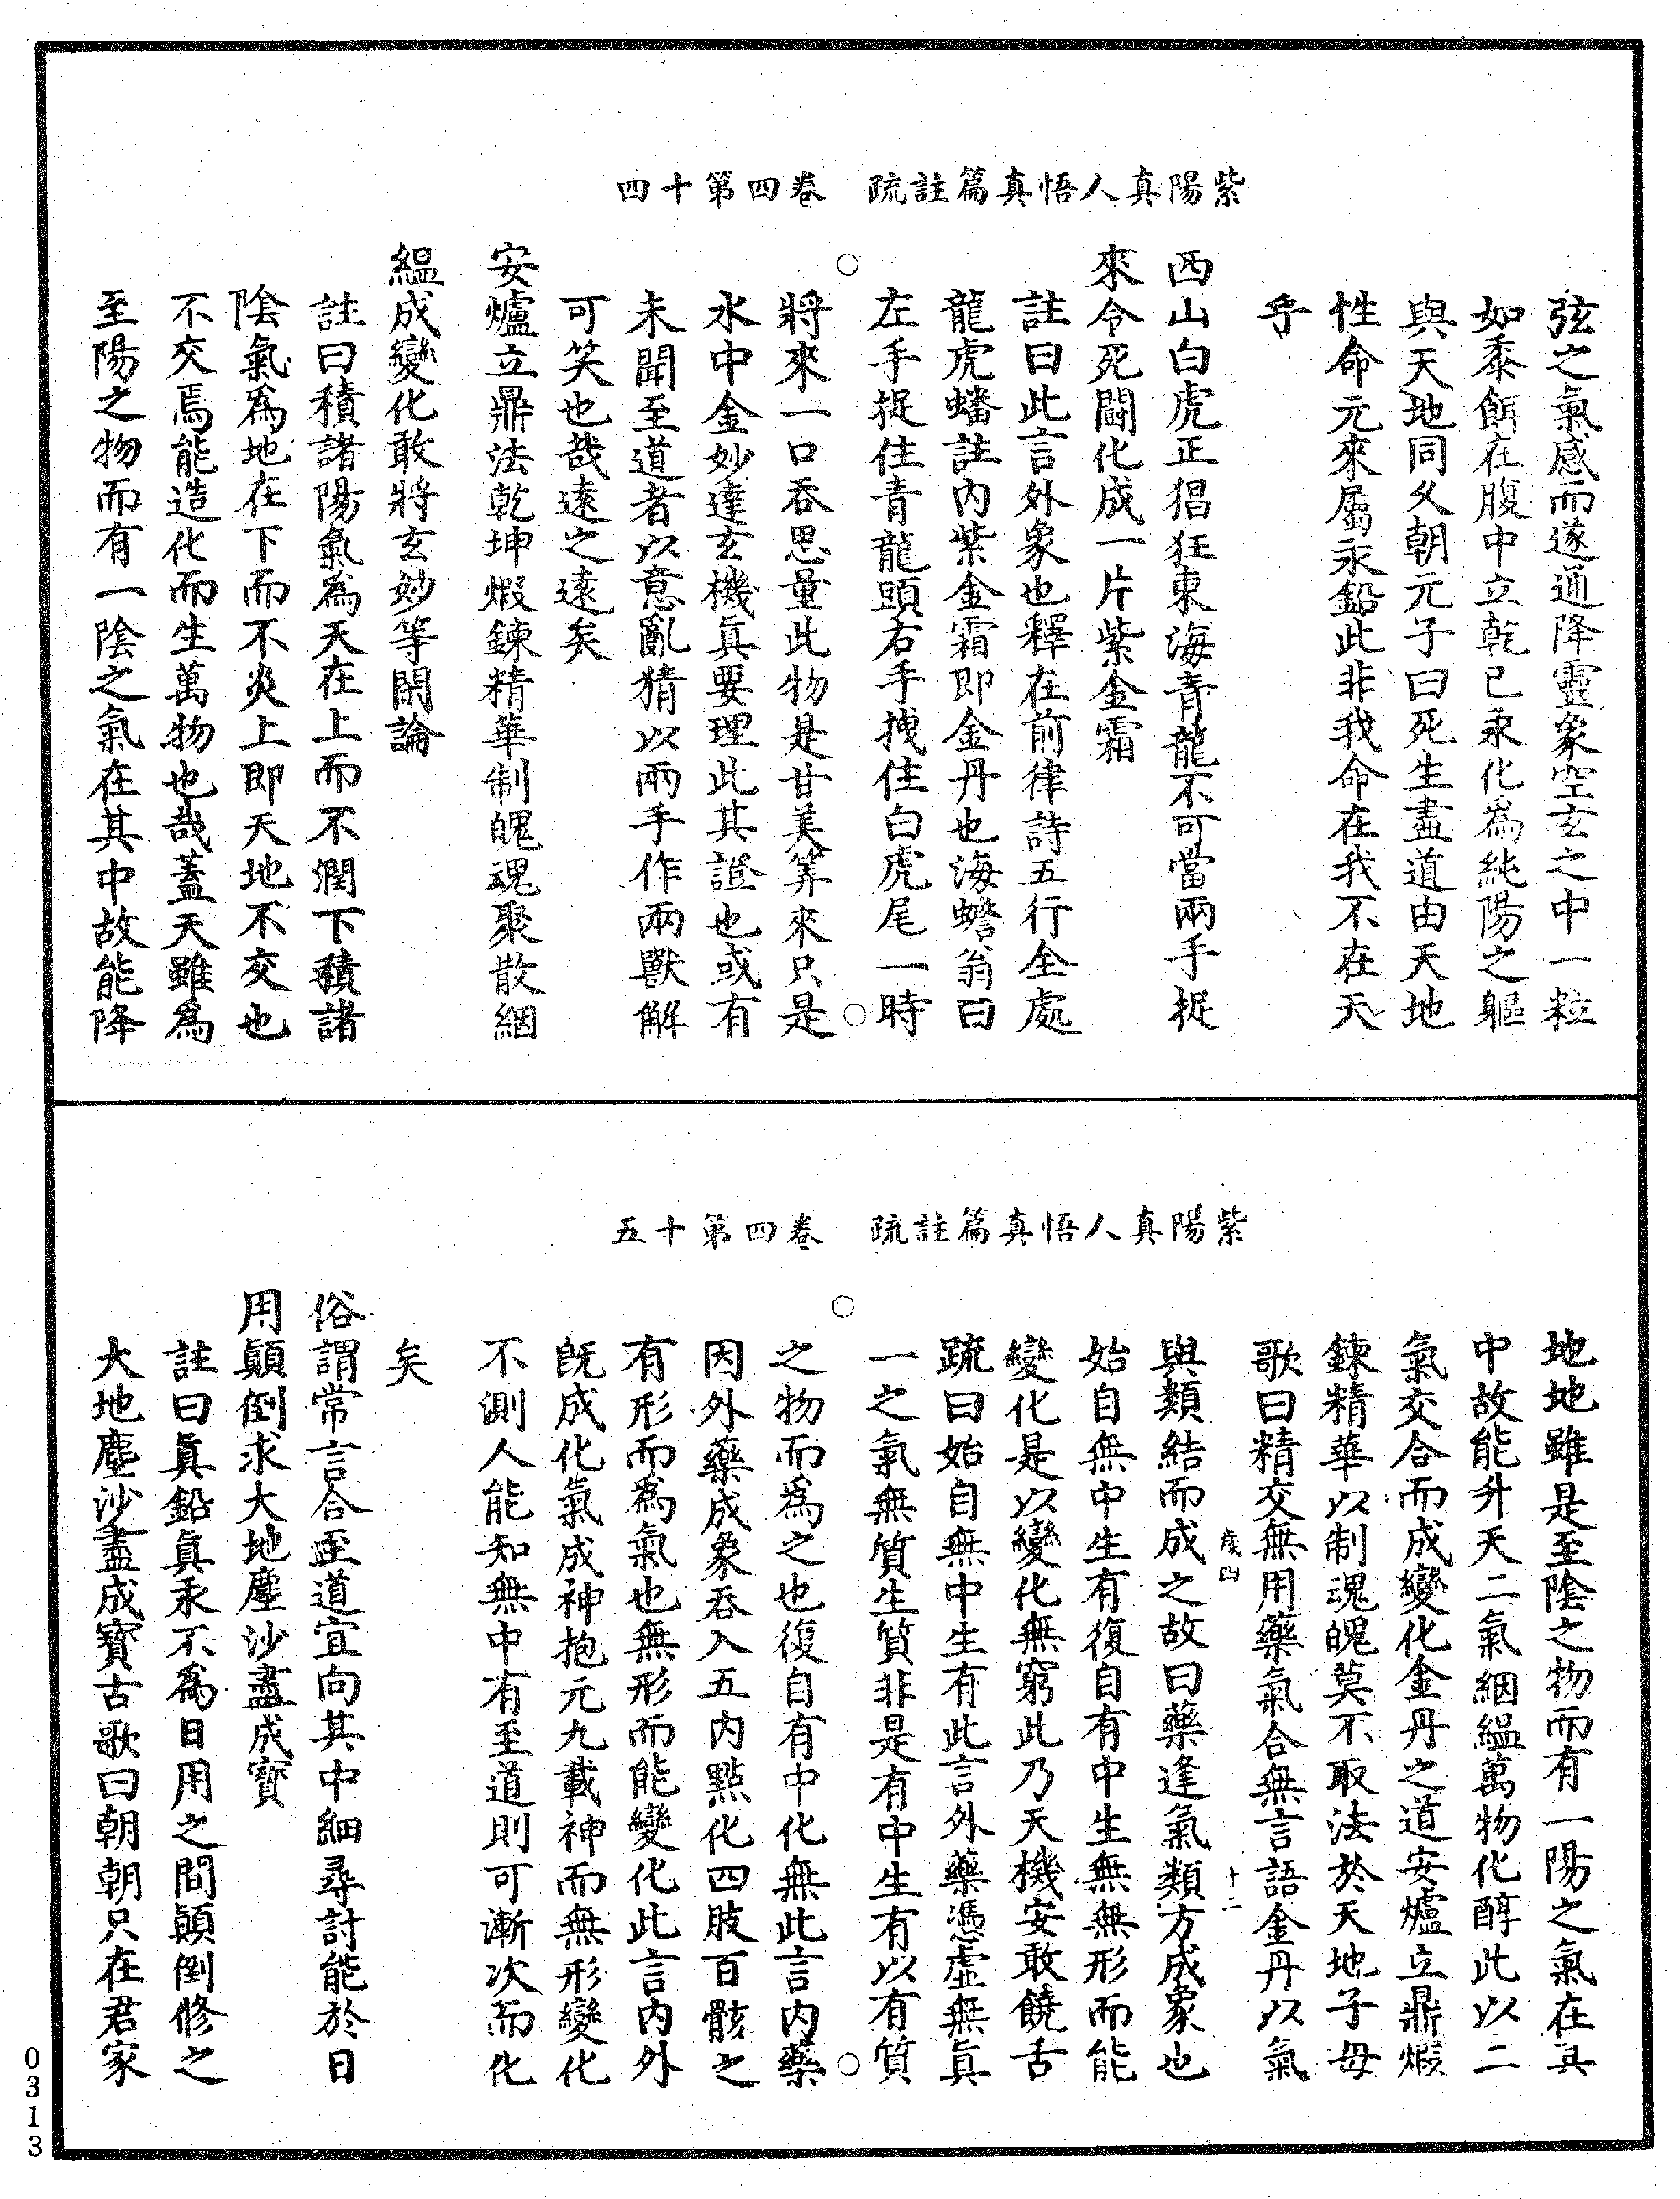 紫陽真人悟真篇註疏　卷四第十四
弦之氣感而遂通降靈象空玄之中一粒
如黍餌在腹中立乾己汞化為純陽之軀
與天地同久朝元子曰死生盡道由天地
性命元來屬汞鉛此非我命在我不在天
乎
西山白虎正猖狂東海青龍不可當兩手捉
來令死鬬化成一片紫金霜
註曰此言外象也釋在前律詩五行全處
龍虎蟠註內紫金霜即金丹也海蟾翁曰
左手捉住青龍頭右手拽住白虎尾一時
將來一口吞思量此物是甘美筭來只是
水中金妙達玄機真要理此其證也或有
未聞至道者以意亂猜以兩手作兩獸解
可笑也哉遠之遠矣
安爐立鼎法乾坤煅鍊精華制魄魂聚散絪
緼成變化敢將玄妙等閑論
註曰積諸陽氣為天在上而不潤下積諸
陰氣為地在下而不炎上即天地不交也
不交焉能造化而生萬物也哉蓋天雖為
至陽之物而有一陰之氣在其中故能降
紫陽真人悟真篇註疏　卷四第十五
地地雖是至陰之物而有一陽之氣在其
中故能升天二氣絪緼萬物化醇此以二
氣交合而成變化金丹之道安爐立鼎煅
鍊精華以制魂魄莫不取法於天地子母
歌曰精交無用藥氣合無言語金丹以氣
歲四　十二
與類結而成之故曰藥逢氣類方成象也
始自無中生有復自有中生無無形而能
變化是以變化無窮此乃天機安敢饒舌
疏曰始自無中生有此言外藥憑虛無真
一之氣無質生質非是有中生有以有質
之物而為之也復自有中化無此言內藥
因外藥成象吞入五內點化四肢百骸之
有形而為氣也無形而能變化此言內外
既成化氣成神抱元九載神而無形變化
不測人能知無中有至道則可漸次而化
矣
俗謂常言合至道宜向其中細尋討能於日
用顛倒求大地塵沙盡成寶
註曰真鉛真汞不為日用之間顛倒修之
大地塵沙盡成寶古歌曰朝朝只在君家
0313